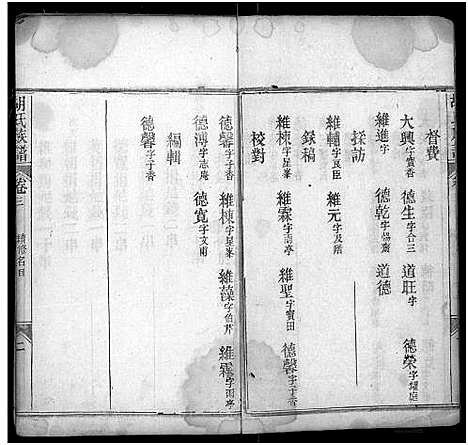 督費
大興字寶三 德生字合三 道旺字 德榮字耀庭
維進字 德乾字惕齋 道德
採訪
維輔字良臣 維元字及階
錄稿
維棟字星峯 維霖字雨亭 維聖字寶田 德馨字子香
校對
德馨字子香 維棟字星峯 維藻字伯芹 維霖字雨亭
德溥字志庵 德寬字文甫
編輯
德馨字子香
胡氏族譜 卷三 續修名目 二